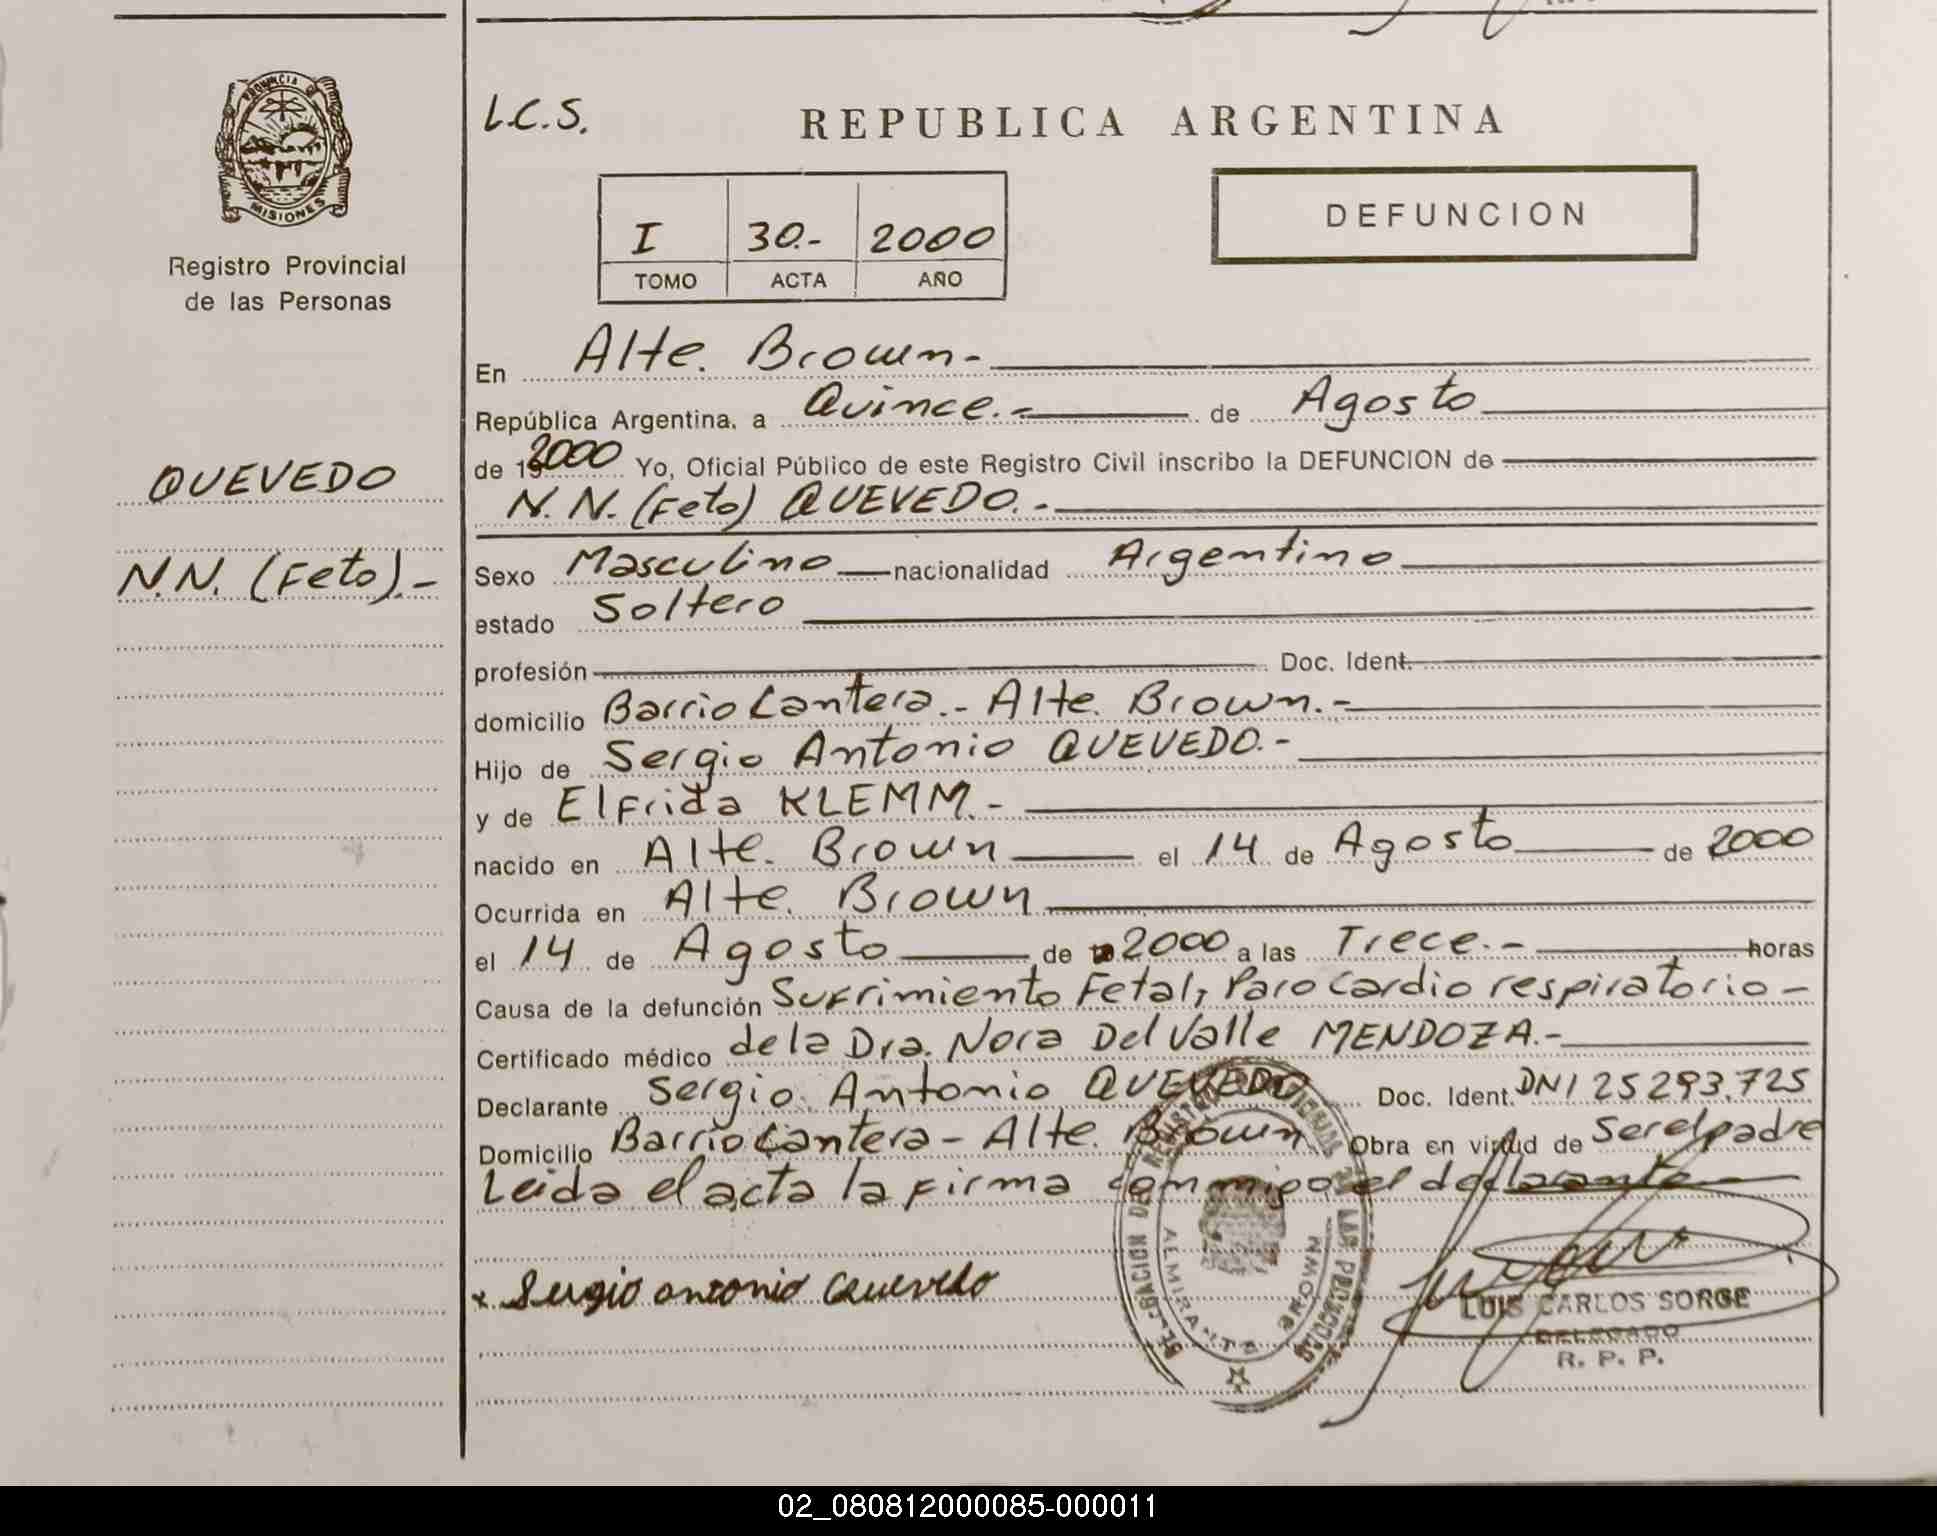 PROVINCIA DE
MISIONES
Registro Provincial
de las Personas
QUEVEDO
N.N. (Feto).-
L.C.S.
REPUBLICA ARGENTINA
I 30.- 2000
TOMO ACTA AÑO
DEFUNCION
En Alte. Brown-
República Argentina, a Quince.- de Agosto
de 2000 Yo, Oficial Público de este Registro Civil inscribo la DEFUNCION de
N.N. (Feto) QUEVEDO.-
Sexo Masculino nacionalidad Argentino
estado Soltero
profesión Doc. Ident.
domicilio Barrio Cantera.- Alte. Brown.-
Hijo de Sergio Antonio QUEVEDO.-
y de Elfrida KLEMM.-
nacido en Alte. Brown el 14 de Agosto de 2000
Ocurrida en Alte. Brown
el 14 de Agosto de 2000 a las Trece.- horas
Causa de la defunción Sufrimiento Fetal, Paro Cardio respiratorio-
Certificado médico de la Dra. Nora Del Valle MENDOZA.-
Declarante Sergio Antonio QUEVEDO Doc. Ident. DNI 25293.725
Domicilio Barrio Cantera- Alte. Brown Obra en virtud de Ser el padre
Leida el acta la firma conmigo el declarante
x Sergio antonio Quevedo
ALMIRANTE BROWN
LUIS CARLOS SORGE
DELEGADO
R. P. P.
02_080812000085-000011